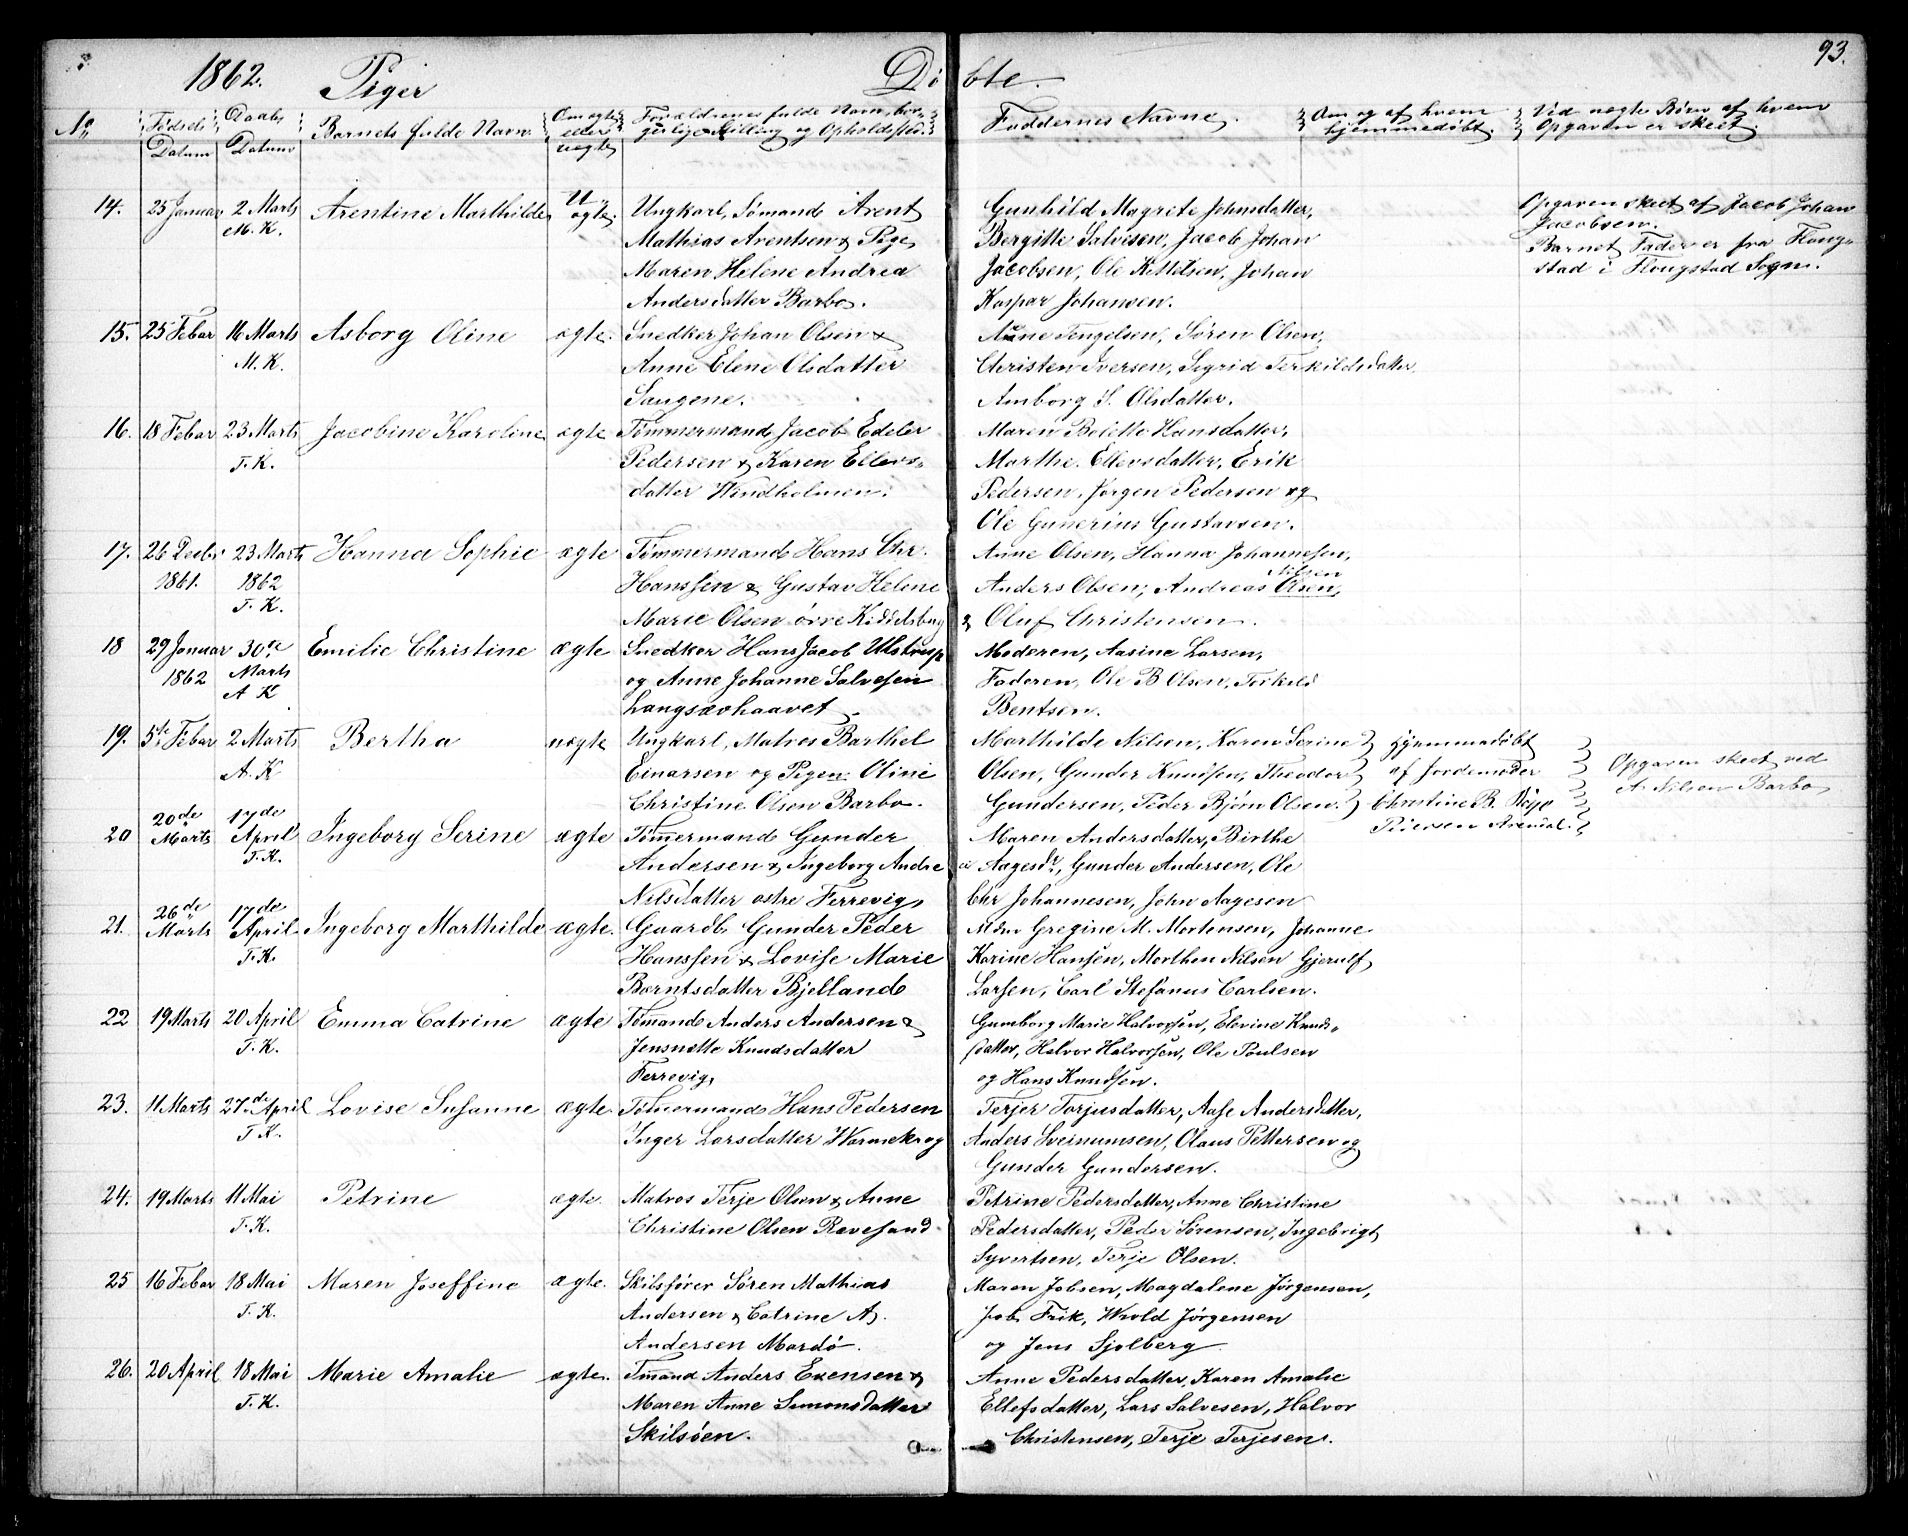 93.
1862. Piger Döbte.
No Fødsels Datum Daabs Datum Barnets fulde Navn. Om ægte eller uægte Forældrenes fulde Navn, borgerlige Stilling og Opholdsted. Faddernes Navne. Om og af hvem hjemmedøbt. Ved uægte Børn af hvem Opgaven er skeet.
14. 25 Januar 2 Marts Arentine Marthilde U, ægte. Ungkarl, Sømand Arent Gunhild Magrete Johnsdatter, Opgaven skeet af Jacob Johan
M. K. Mathias Arentsen & Pige Bergitte Salvesen, Jacob Johan Jacobsen.
Maren Helene Andrea Jacobsen, Ole Kittilsen, Johan Barnet Fader er fra Flong-
Andersdatter Barbo. Kaspar Johansen. stad i Flougstad Sogn.
15. 25 Febar 16 Marts Asborg Oline ægte. Snedker Johan Olsen & Anne Tengelsen, Søren Olsen,
M. K. Anne Elene Olsdatter Christen Iversen, Sigrid Terkildsdatter
Saugene. Amborg S. Olsdatter.
16. 18 Febar 23 Marts Jacobine Karoline ægte Tømmermand Jacob Edeler Maren Bolette Hansdatter,
T. K. Pedersen & Karen Ellevs- Marthe Ellevsdatter, Erik
datter Windholmen. Pedersen, Jørgen Pedersen og
Ole Gunerius Gustavsen.
17. 26 Decbr 23 Marts Hanna Sophie ægte Tømmermand Hans Chr. Anne Olsen, Hanna Johannesen,
1861. 1862 Hanssen & Gustav Helene Anders Olsen, Andreas Olsen, Nilsen
T. K. Marie Olsen övre Kiddelsbug & Oluf Christensen.
18 29 Januar 30te Emilie Christine ægte Snedker Hans Jacob Ulstrup Moderen, Aasine Larsen,
1862 Marts og Anne Johanne Salvesen Faderen, Ole B Olsen, Terkild
A K Langsævhaavet Bentsen.
19. 5te Febar 2 Marts Bertha uægte Ungkarl, Matros Barthel Marthilde Nilsen, Karen Serine Hjemmedöbt
A. K Einarsen og Pigen Oline Olsen, Gunder Knudsen, Theodor af Jordemoder Opgaven skeet ved
Christine Olsen Barbo. Gundersen, Peder Bjørn Olsen. Christine B. A. Nilsen Barbo
Pedersen Arendal.
20 20de Marts 17de April Ingeborg Serine ægte Tømmermand Gunder Maren Andersdatter, Birthe
T. K. Andersen & Ingeborg Andrea Aagesdr, Gunder Andersen, Ole
Nilsdatter ostre Ferrevig, Chr Johannesen, John Aagesen
21. 26de Marts 17de April Ingeborg Marthilde ægte. Gaardb. Gunder Peder Mdm Gregine M. Mortensen, Johanne
T. K. Hanssen & Lovise Marie Karine Hansen, Morthen Nilsen Gjerulf
Berntsdatter Bjelland Larsen, Carl Stefanus Carlsen.
22 19 Marts 20 April Emma Catrine ægte Tømand Anders Andersen & Gumborg Marie Halvorsen, Elevine Knuds-
T. K. Jensnette Knudsdatter datter, Halvor Halvorsen, Ole Poulsen
Ferrevig, og Hans Knudsen.
23. 11 Marts 27de April Lovise Susanne ægte Tømmermand Hans Pedersen Terjer Torjusdatter, Aase Andersdatter,
T K. Inger Larsdatter Warmekrog Anders Sveinumsen, Olaus Pettersen og
Gunder Gundersen.
24. 19 Marts 11 Mai Petrine ægte. Matros Terje Olsen & Anne Petrine Pedersdatter, Anne Christine
T. K. Christine Olsen Revesand Pedersdatter, Peder Sørensen, Ingebrigt
Syvertsen, Terje Olsen.
25 16 Febar 18 Mai Maren Joseffine ægte. Skibsfører Søren Mathias Maren Jobsen, Magdalene Jørgensen,
T. K. Andersen & Catrine A. Job Frik, Wrold Jørgensen
Andersen Mardö. og Jens Sjølberg
26. 20 April 18 Mai Marie Amalie ægte. Tmand Anders Evensen & Anne Pedersdatter, Karen Amalie
T. K. Maren Anne Simonsdatter Ellefsdatter, Lars Salvesen, Halvor
Skilsöen. Christensen, Terje Terjesen.